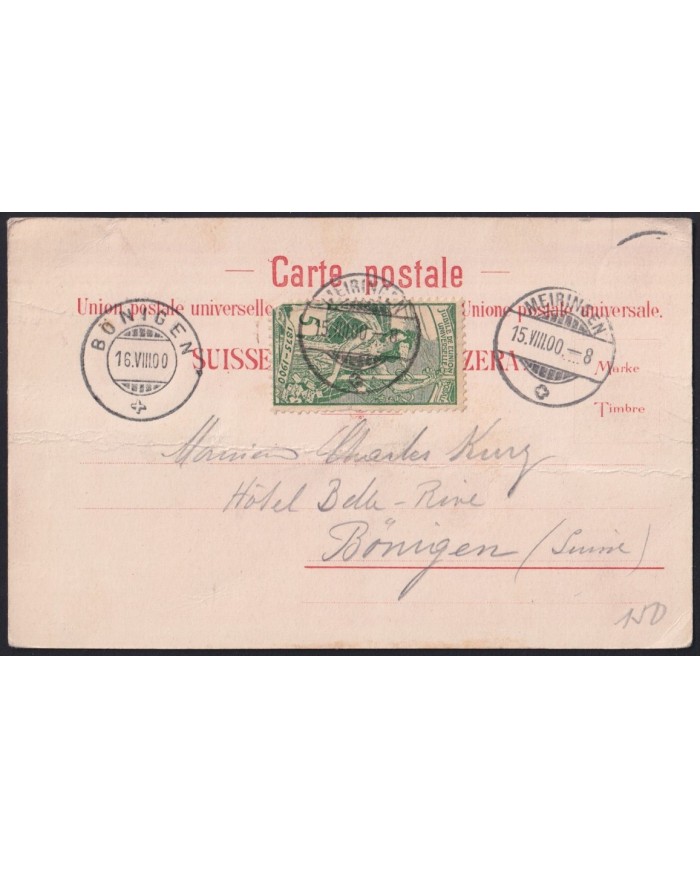 Carte postale
Union postale universelle Unione postale universale.
SUISSE ZERA
Marke
Timbre
BÖNIGEN
16.VIII.00
MEIRINGEN
15.VIII.00.—8
MEIRINGEN
5
1875-1900
JUBILÉ DE L'UNION
UNIVERSELLE
Monsieur Charles Kurz
Hôtel Belle-Rive
Bönigen (Suisse)
150